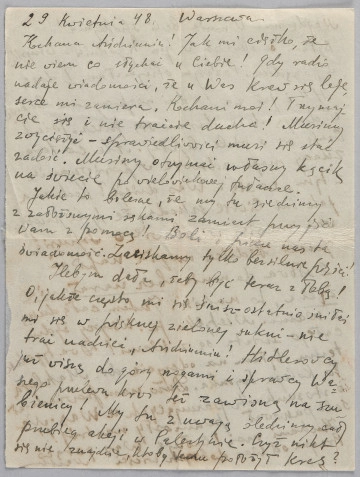 29 Kwietnia 48. Warszawa.
Kochana! Jak mi ciężko, że
nie wiem co słychać u Ciebie! Gdy radio
nadaje wiadomości, że u Was krew się leje,
serce mi zamiera. Kochani moi! Trzymaj
cie się i nie traćcie ducha! Musimy
zwyciężyć - sprawiedliwości musi się stać
zadość. Musimy otrzymać własny kącik
na świecie po wielowiekowej tułaczce.
Jakie to bolesne, że my tu siedzimy
z założonymi rękami zamiast przyjść
Wam z pomocą! Boli nasza
świadomość. Zaciskamy tylko bezsilnie pięści!
dała, żeby być teraz z Tobą!
O, jakże często mi się śnisz - ostatnio śniłaś
mi się w pięknej zielonej sukni - nie
trać nadziei! Hitlerowcy
już wiszą do góry nogami i sprawcy Wa-
szego rozlewu krwi też zawisną na szu-
bienicy! My tu z uwagą śledzimy
przebieg akcji w Palestynie. Czyż nikt
się nie znajdzie, ktoby temu położył kres?